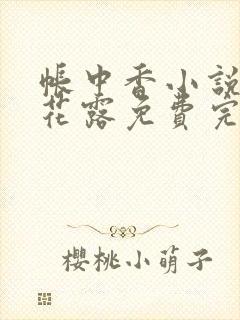 帳中香小說
花露免費完
櫻桃小萌子